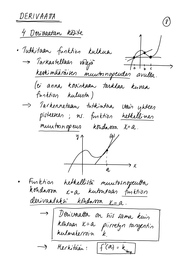 DERIVAATTA
1
4 Derivaatan käsite
• Tutkitaan funktion kulkua
→ Tarkastellaan väliä
keskimääräisen muutosnopeuden avulla
(ei anna kovinkaan tarkkaa kuvaa
funktion kulusta)
→ Tarkennetaan tutkintaa vain yhteen
pisteeseen; ns. funktion hetkellinen
muutosnopeus kohdassa x=a
a
• Funktion hetkellistä muutosnopeutta
kohdassa x=a kutsutaan funktion
derivaataksi kohdassa x=a
→ Derivaatta on siis sama kuin
käyrään x=a piirretyn tangentin
kulmakerroin k
→ Merkitään: f'(a) = k